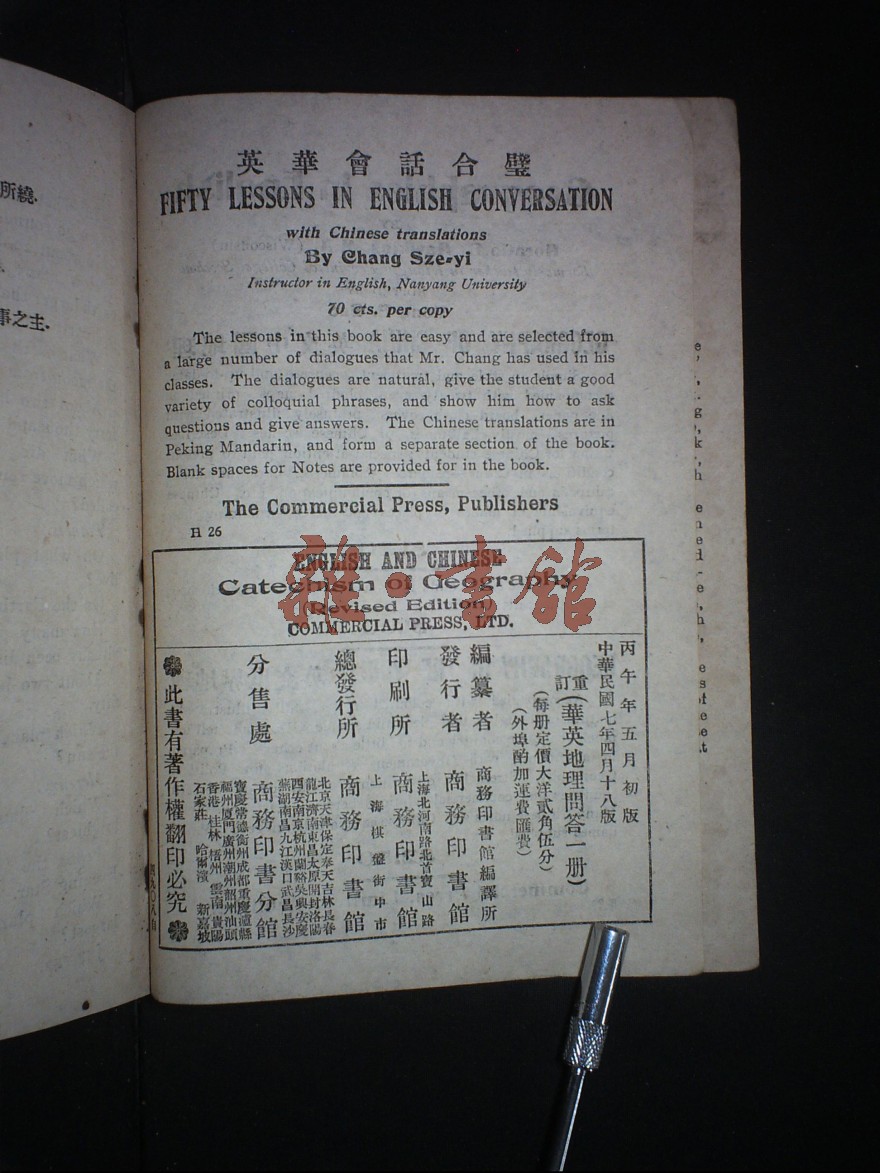 所繞.
事之主.
英華會話合璧
FIFTY LESSONS IN ENGLISH CONVERSATION
with Chinese translations
By Chang Sze-yi
Instructor in English, Nanyang University
70 cts. per copy
The lessons in this book are easy and are selected from
a large number of dialogues that Mr. Chang has used in his
classes. The dialogues are natural, give the student a good
variety of colloquial phrases, and show him how to ask
questions and give answers. The Chinese translations are in
Peking Mandarin, and form a separate section of the book.
Blank spaces for Notes are provided for in the book.
The Commercial Press, Publishers
H 26
ENGLISH AND CHINESE
Catechism of Geography
(Revised Edition)
COMMERCIAL PRESS, LTD.
雜·書館
丙午年五月初版
中華民國七年四月十八版
重訂(華英地理問答一册)
(每册定價大洋貳角伍分)
(外埠酌加運費匯費)
編纂者 商務印書館編譯所
發行者 商務印書館
上海北河南路北首寶山路
印刷所 商務印書館
上海棋盤街中市
總發行所 商務印書館
北京天津保定奉天吉林長春
龍江濟南東昌太原開封洛陽
西安南京杭州蘭谿吳興安慶
蕪湖南昌九江漢口武昌長沙
分售處 商務印書分館
寶慶常德衡州成都重慶瀘縣
福州厦門廣州潮州韶州汕頭
香港 桂林 梧州 雲南 貴陽
石家莊 哈爾濱 新嘉坡
此書有著作權翻印必究